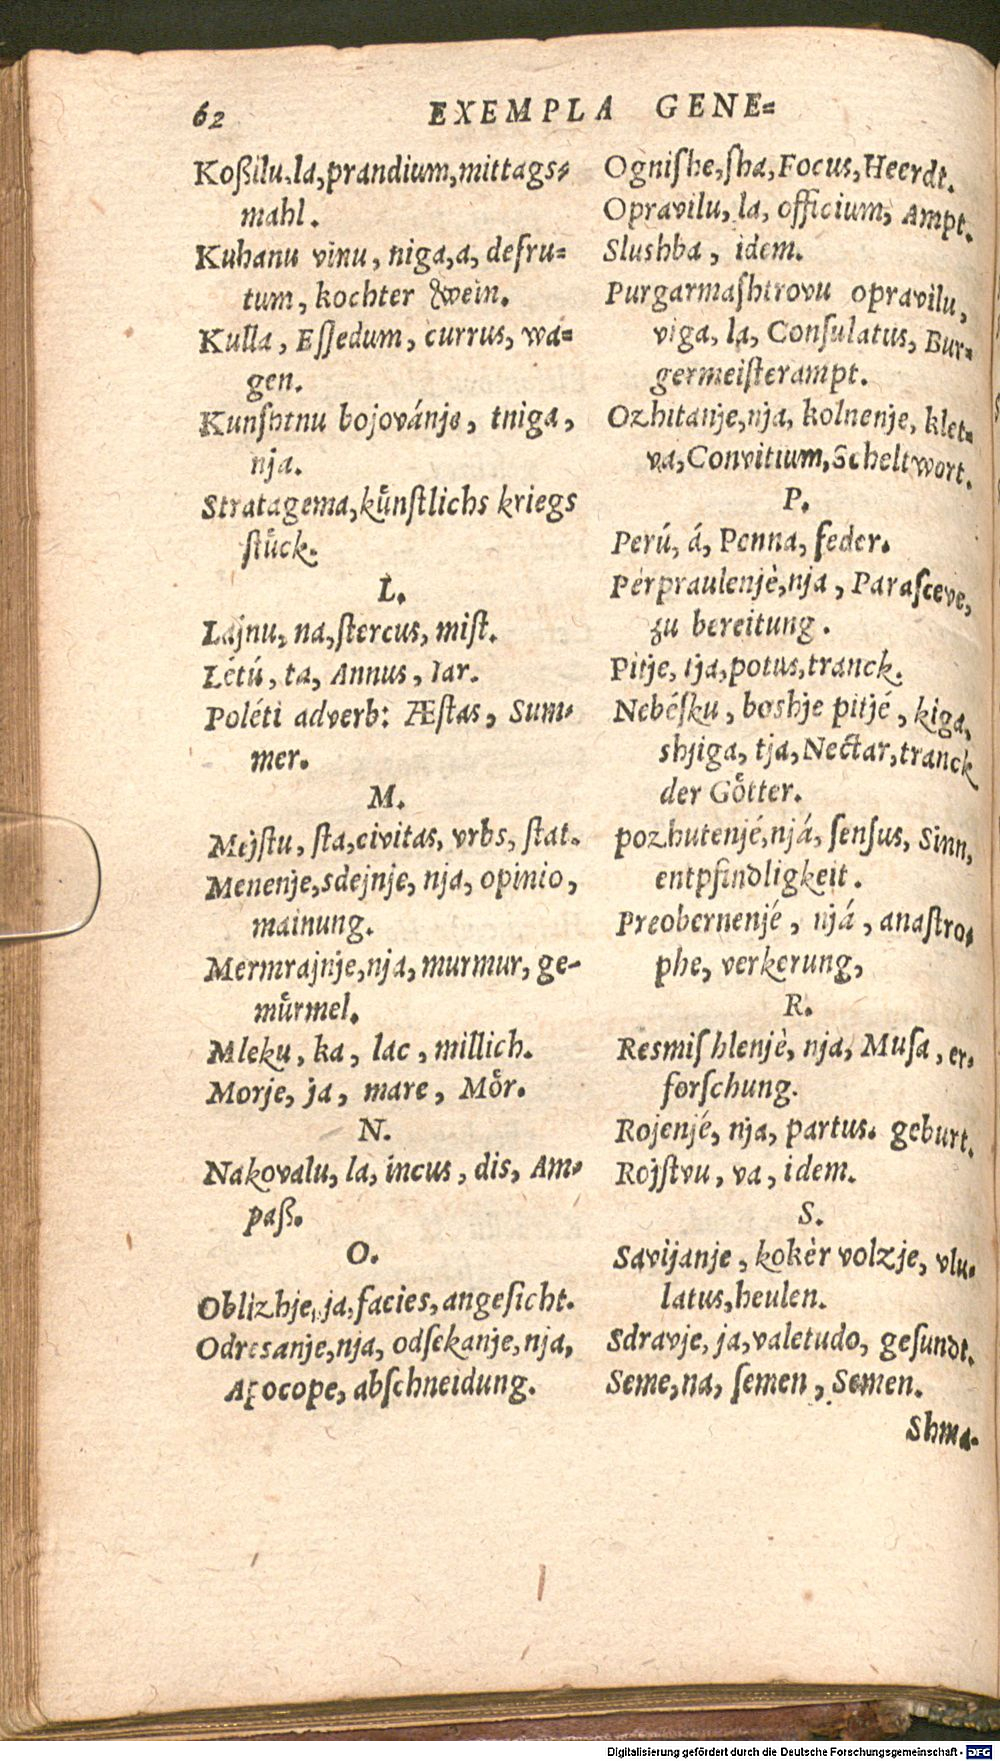 62 EXEMPLA GENE=
Koßilu, la, prandium, mittags=
mahl.
Kuhanu vinu, niga, a, defru=
tum, kochter wein.
Kulla, Eſſedum, currus, wa=
gen.
Kunſhtnu bojovánje, tniga,
nja.
Stratagema, kuͤnſtlichs kriegs
ſtuͤck.
L.
Lajnu, na, ſtercus, miſt.
Létú, ta, Annus, Iar.
Poléti adverb: Æſtas, Sum=
mer.
M.
Mejſtu, ſta, civitas, vrbs, ſtat.
Menenje, sdejnje, nja, opinio,
mainung.
Mermrajnje, nja, murmur, ge-
muͤrmel.
Mleku, ka, lac, millich.
Morje, ja, mare, Moͤr.
N.
Nakovalu, la, incus, dis, Am=
paß.
O.
Oblizhje, ja, facies, angeſicht.
Odresanje, nja, odſekanje, nja,
Apocope, abſchneidung.
Ogniſhe, ſha, Focus, Heerdt.
Opravilu, la, officium, Ampt.
Slushba, idem.
Purgarmaſhtrovu opravilu,
viga, la, Conſulatus, Bur=
germeiſterampt.
Ozhitanje, nja, kolnenje, klet=
va, Convitium, Scheltwort.
P.
Perú, á, Penna, feder.
Pérpraulenjè, nja, Paraſceve,
zu bereitung.
Pitje, tja, potus, tranck.
Nebéſku, boshje pitjé, kiga,
shjiga, tja, Nectar, tranck
der Goͤtter.
pozhutenjé, njá, ſenſus, Sinn,
entpfindligkeit.
Preobernenjé, njá, anaſtro=
phe, verkerung,
R.
Resmiſhlenjè, nja, Muſa, er=
forſchung.
Rojenjé, nja, partus. geburt.
Rojſtvu, va, idem.
S.
Savijanje, kokèr volzje, vlu=
latus, heulen.
Sdravje, ja, valetudo, geſundt.
Seme, na, ſemen, Semen.
Shma-
Digitalisierung gefördert durch die Deutsche Forschungsgemeinschaft - DFG